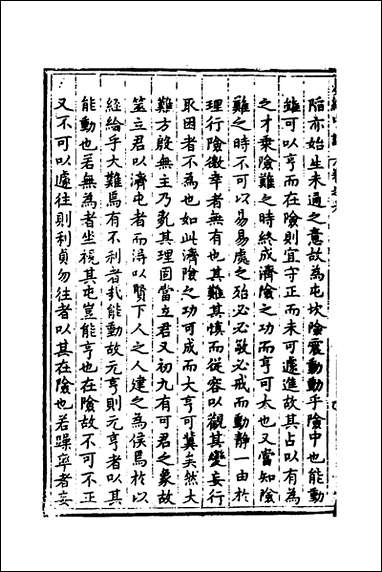 陷亦始生未通之意故為屯坎險震動動乎險中也能動
雖可以亨而在險則宜守正而未可遽進故其占以有為
之才乘險難之時終成濟險之功而亨可大也又當知險
難之時不可以易易處之殆必必敏必戒而動靜一由於
理行險徼幸者無有也其難其慎而從容以觀其變妄行
取困者不為也如此濟險之功可成而大亨可冀矣然大
難方殷無主乃亂其理固當立君又初九有可君之象故
筮立君以濟屯者而得以賢下人之人建之為侯焉於以
經綸乎大難焉有不利者哉能動故元亨則元亨者以其
能動也若無為者坐視其屯豈能亨也在險故不可不正
又不可以遽往則利貞勿往者以其在險也若躁率者妄